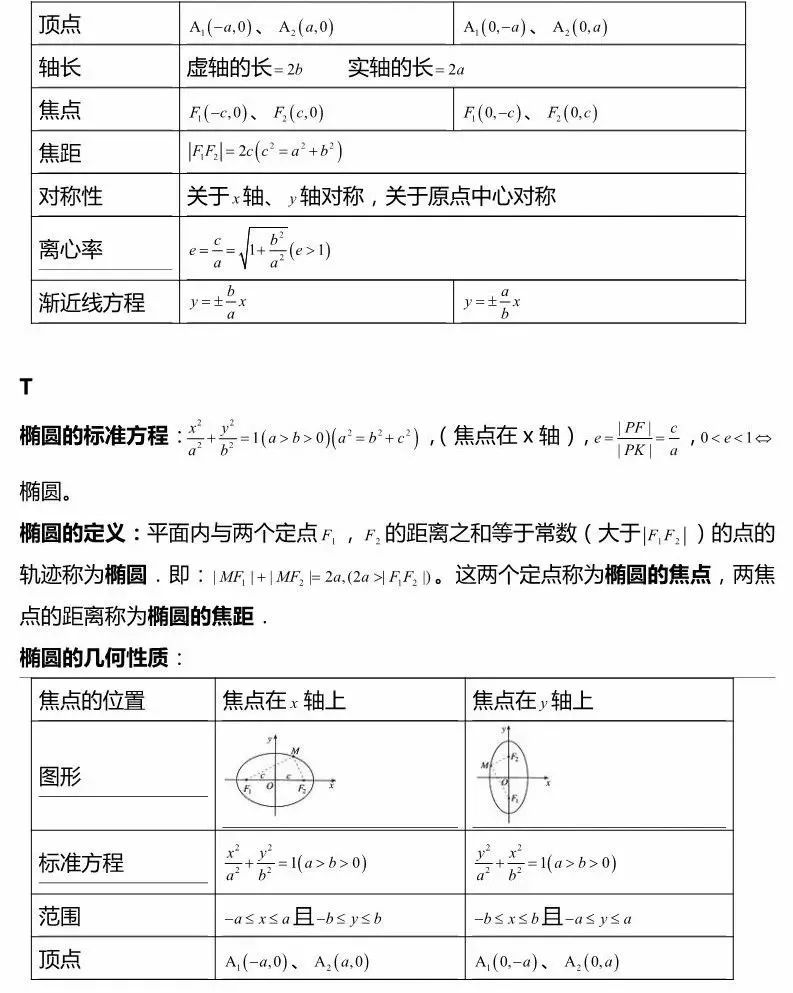 顶点 A₁(−a,0)、 A₂(a,0) A₁(0,−a)、 A₂(0,a)
轴长 虚轴的长=2b 实轴的长=2a
焦点 F₁(−c,0)、 F₂(c,0) F₁(0,−c)、 F₂(0,c)
焦距 |F₁F₂|=2c(c²=a²+b²)
对称性 关于x轴、y轴对称，关于原点中心对称
离心率 e=c/a=√(1+b²/a²)(e>1)
渐近线方程 y=±(b/a)x y=±(a/b)x
T
椭圆的标准方程：x²/a²+y²/b²=1(a>b>0)(a²=b²+c²)，（焦点在x轴），e=|PF|/|PK|=c/a，0<e<1⇔
椭圆。
椭圆的定义：平面内与两个定点F₁，F₂的距离之和等于常数（大于|F₁F₂|）的点的
轨迹称为椭圆．即：|MF₁|+|MF₂|=2a,(2a>|F₁F₂|)。这两个定点称为椭圆的焦点，两焦
点的距离称为椭圆的焦距．
椭圆的几何性质：
焦点的位置 焦点在x轴上 焦点在y轴上
图形 y M F₁ c O c F₂ x y M F₂ O x F₁
标准方程 x²/a²+y²/b²=1(a>b>0) y²/a²+x²/b²=1(a>b>0)
范围 −a≤x≤a且−b≤y≤b −b≤x≤b且−a≤y≤a
顶点 A₁(−a,0)、 A₂(a,0) A₁(0,−a)、 A₂(0,a)